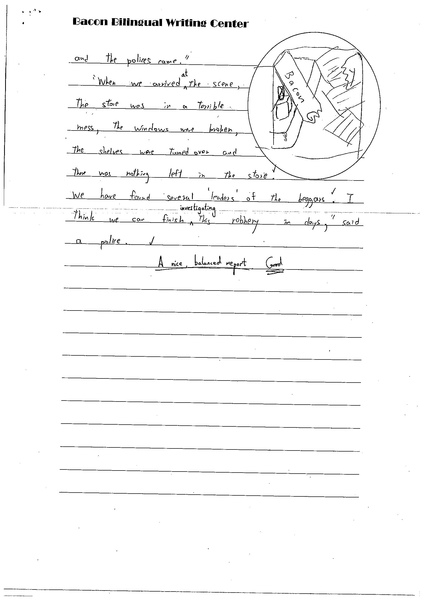 Bacon Bilingual Writing Center
and the polices came."
"When we arrived at the scene,
Bacon
The store was in a terrible
mess, The windows were broken,
The shelves were turned over and
There was nothing left in the store.
We have found several 'leaders' of the beggars. I
think we can finish investigating this robbery in days," said
a police.
A nice, balanced report Good